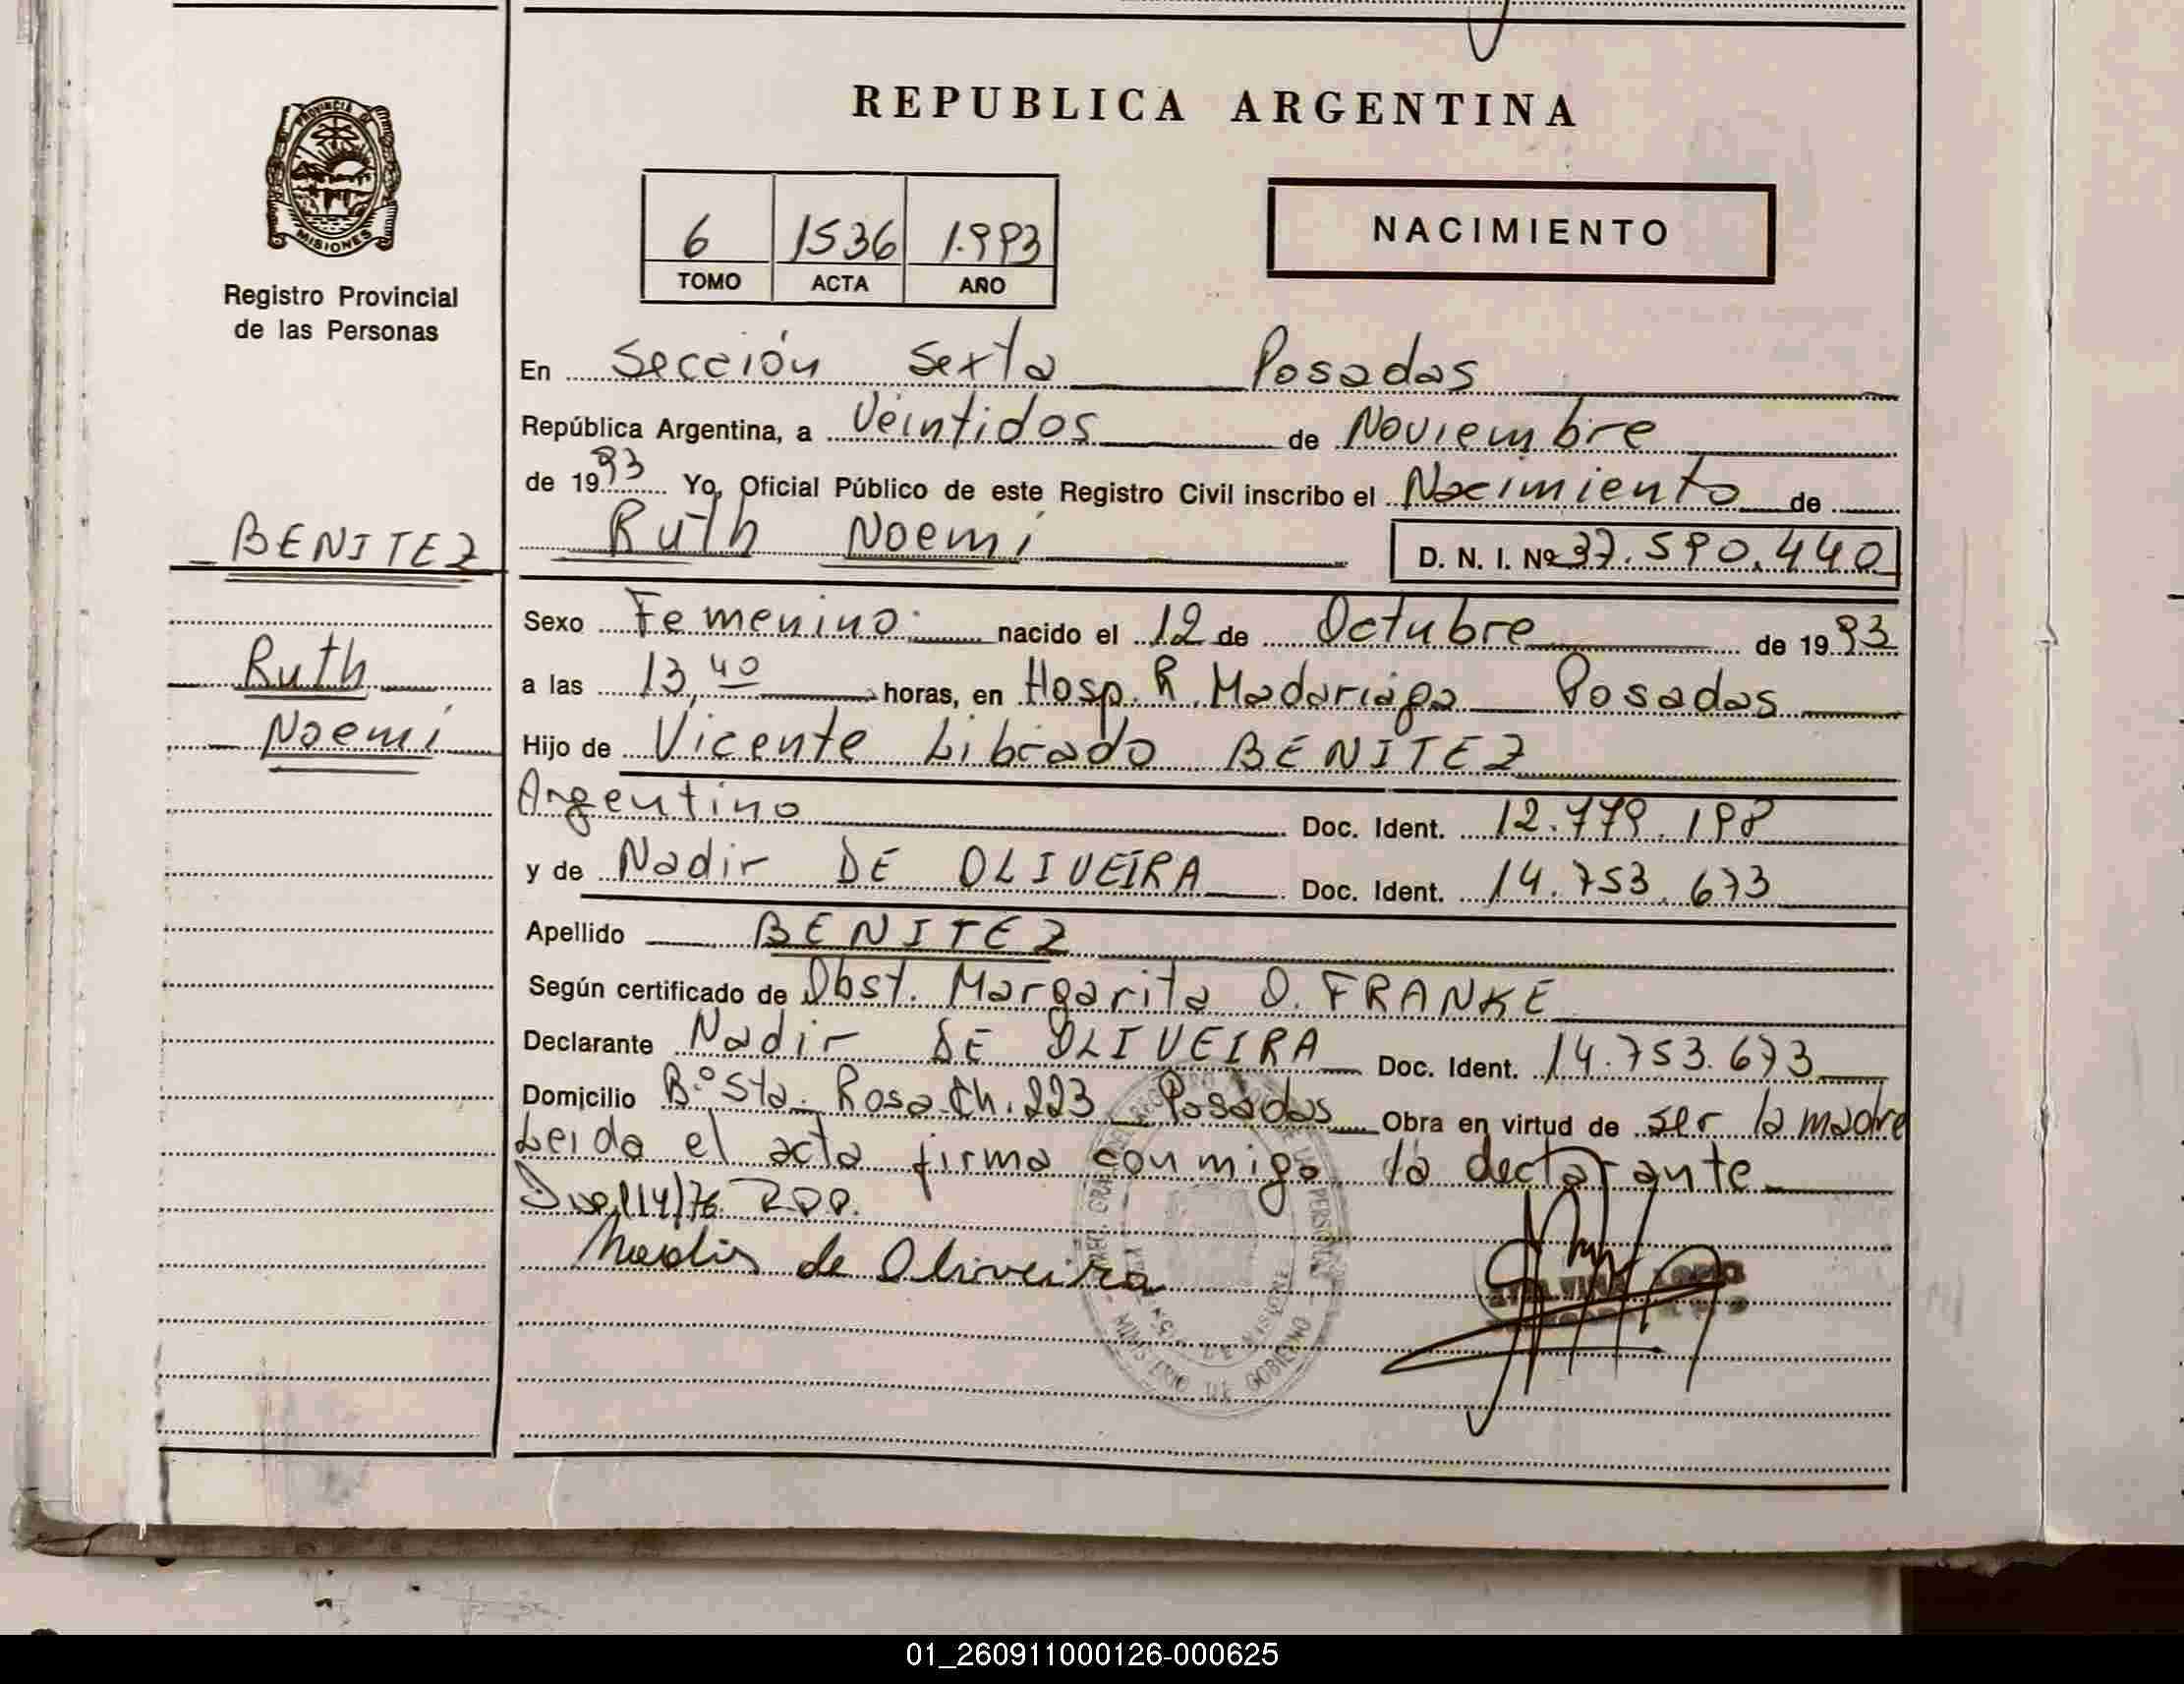 REPUBLICA ARGENTINA
PROVINCIA DE
MISIONES
Registro Provincial
de las Personas
6 1536 1.993
TOMO ACTA AÑO
NACIMIENTO
En Sección Sexta Posadas
República Argentina, a Veintidos de Noviembre
de 1993 Yo, Oficial Público de este Registro Civil inscribo el Nacimiento de
BENITEZ
Ruth Noemí D. N. I. Nº 37.590.440
Sexo Femenino. nacido el 12 de Octubre de 1993
Ruth
a las 13,40 horas, en Hosp. R. Madariaga Posadas
Noemí
Hijo de Vicente Librado BENITEZ
Argentino Doc. Ident. 12.779.198
y de Nadir DE OLIVEIRA Doc. Ident. 14.753.673
Apellido BENITEZ
Según certificado de Obst. Margarita O. FRANKE
Declarante Nadir DE OLIVEIRA Doc. Ident. 14.753.673
Domicilio B.º Sta. Rosa Ch. 223 Posadas Obra en virtud de ser la madre
Leida el acta firma conmigo la declarante
Nadir de Oliveira
MINISTERIO DE GOBIERNO
01_260911000126-000625